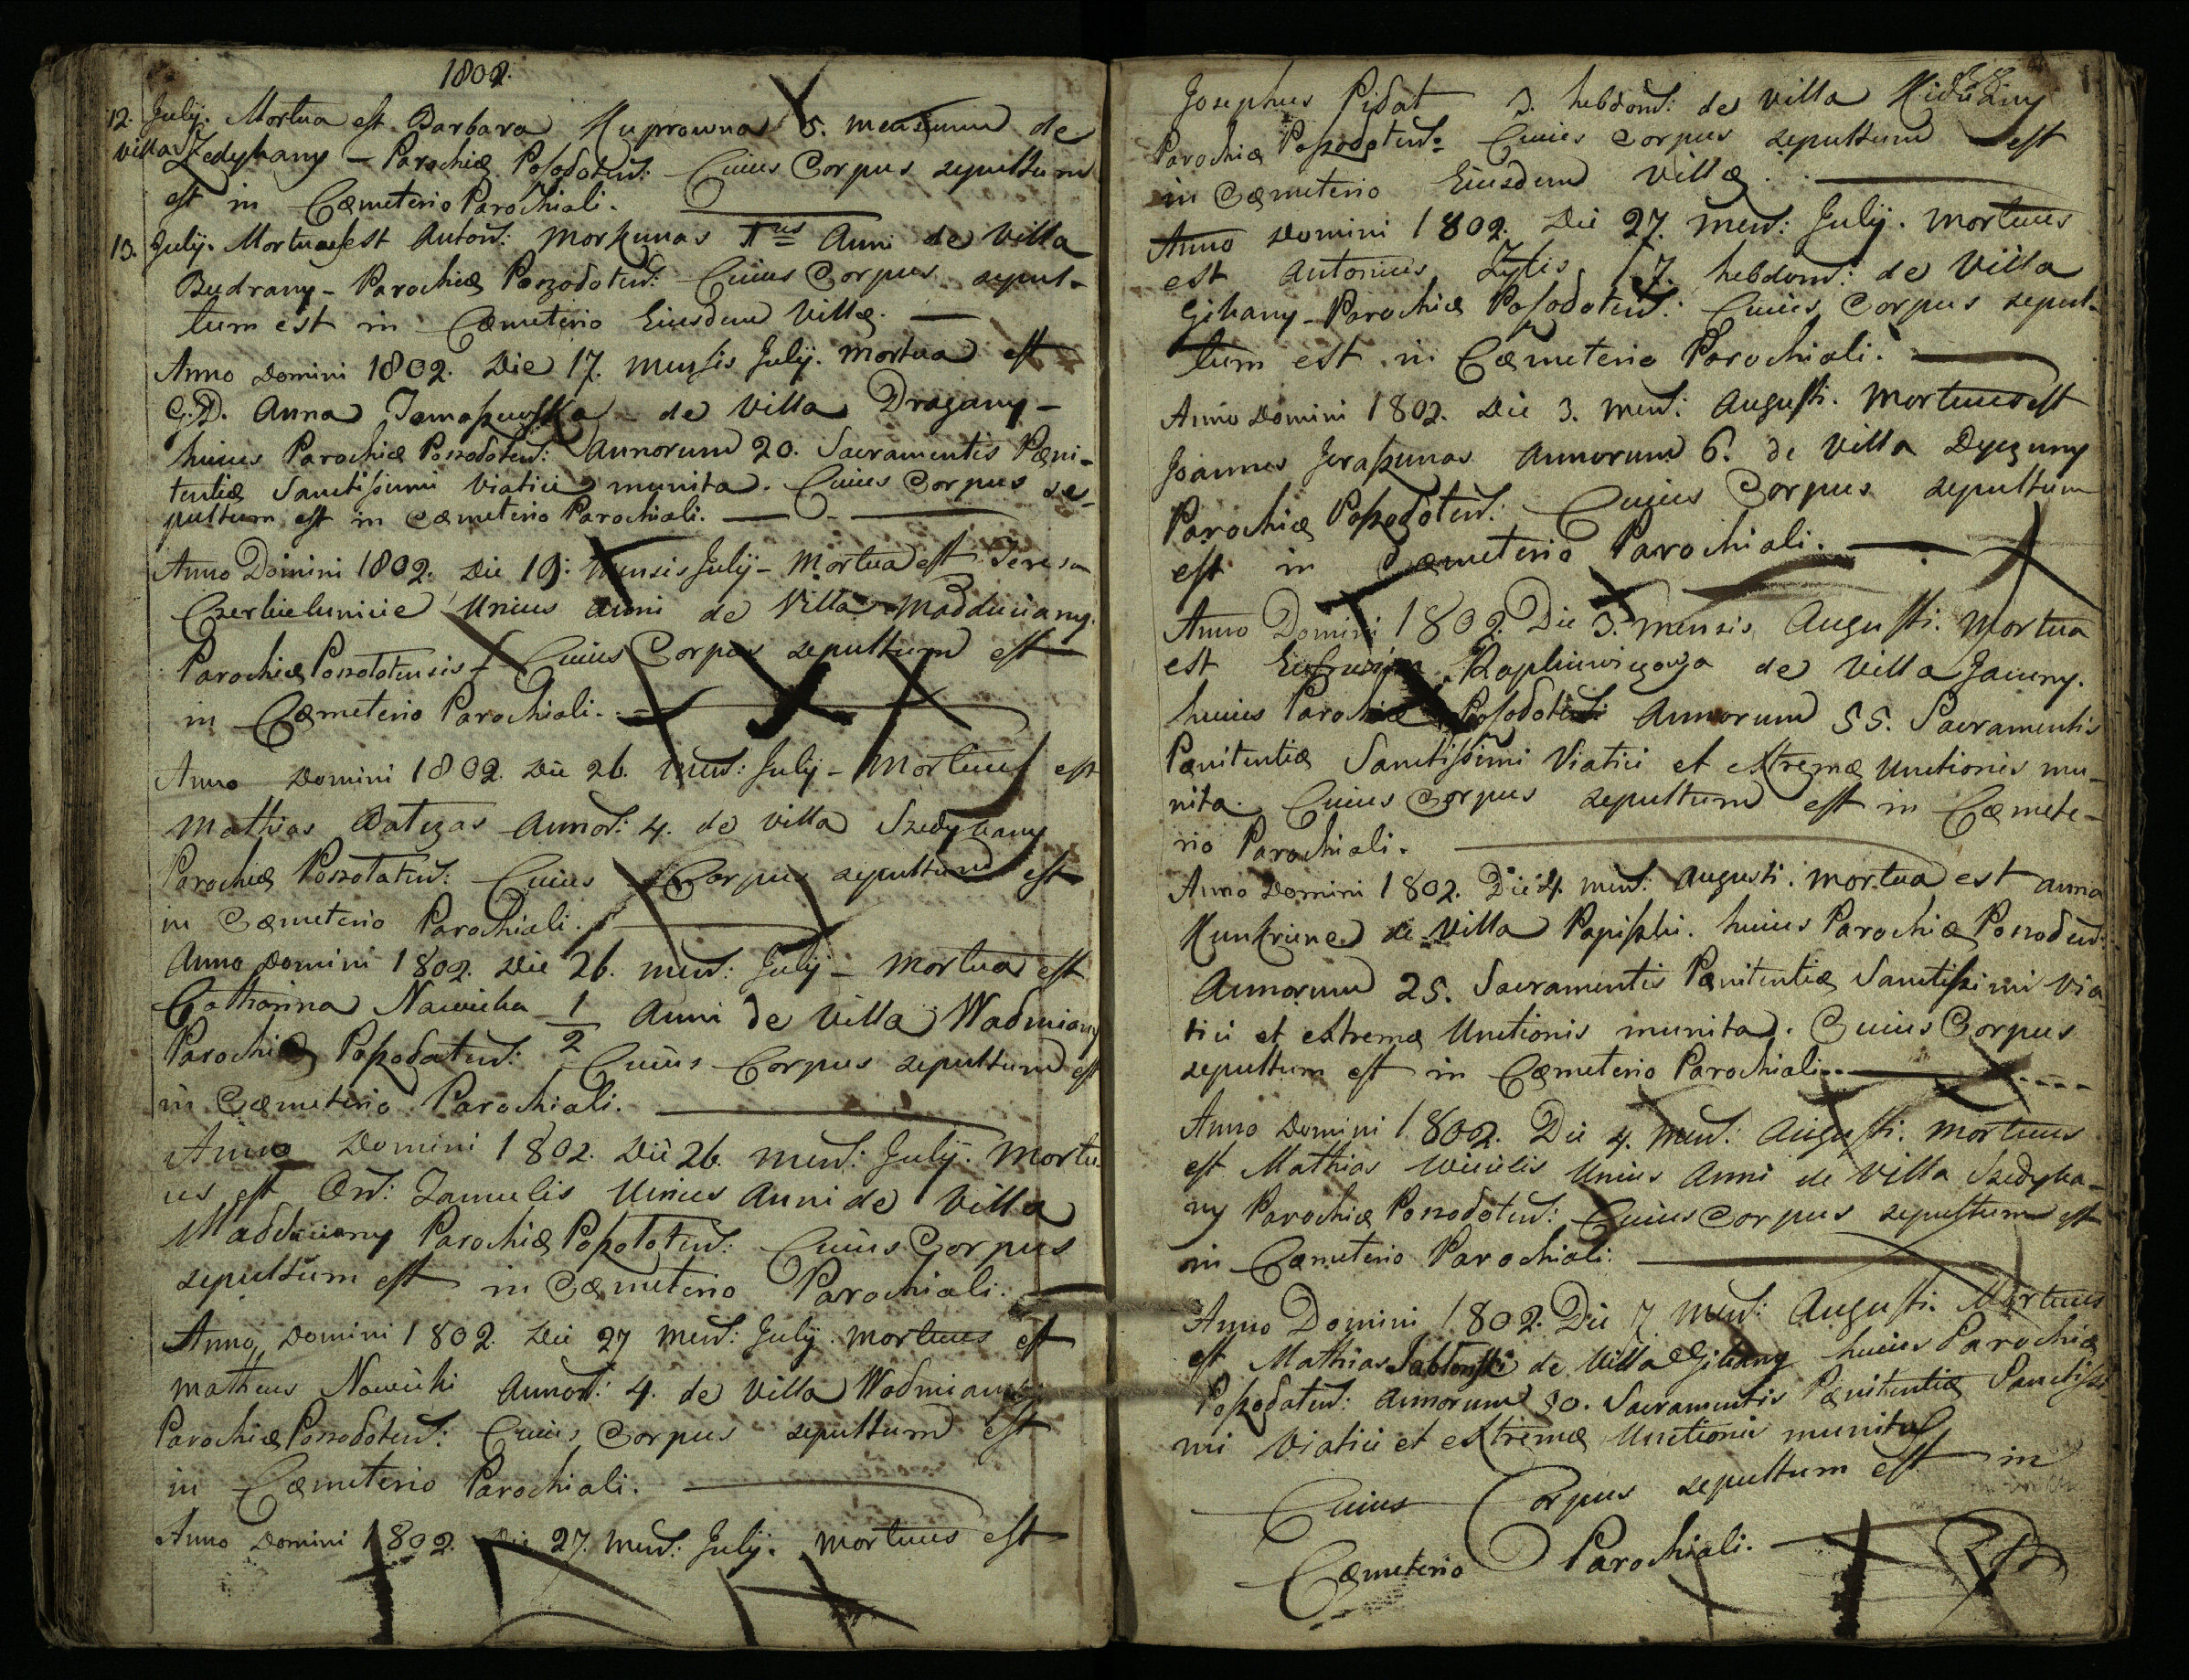 1802.
12. July. Mortua est Barbara Kuprowna 5. mensium de
villa Szedykany – Parochiæ Posodoten: Cuius Corpus sepultum
est in Cæmeterio Parochiali.
13. July. Mortuus est Anton: Morkunas 1us Anni de Villa
Budrany – Parochiæ Poszodoten: Cuius Corpus sepul-
tum est in Cæmeterio Eiusdem Villæ.
Anno Domini 1802. Die 17. mensis July. Mortua est
G.D. Anna Tomaszewska de Villa Dragany –
huius Parochiæ Poszodoten: Annorum 20. Sacramentis Pæni-
tentiæ Sanctissimi Viatici munita. Cuius Corpus se-
pultum est in Cæmeterio Parochiali.
Anno Domini 1802. Die 19. Mensis July – Mortua est Teresa
Unius anni de Villa Madduciany.
Parochiæ Poszototensis Cuius Corpus sepultum est
in Cæmeterio Parochiali.
Anno Domini 1802. Die 26. men: July – Mortuus est
Mathias Batizas Annor: 4. de villa Szedykany
Parochiæ Poszotaten: Cuius Corpus sepultum est
in Cæmeterio Parochiali.
Anno Domini 1802. Die 26. men: July – Mortua est
Catharina Nawicka 1/2 Anni de Villa Wadmiany
Parochiæ Poszodaten: Cuius Corpus sepultum est
in Cæmeterio Parochiali.
Anno Domini 1802. Die 26. men: July. Mortu-
us est Zamulis Unius Anni de Villa
Madduciany Parochiæ Poszototen: Cuius Corpus
sepultum est in Cæmeterio Parochiali.
Anno Domini 1802. Die 27 men: July. Mortuus est
Matheus Nawicki Annor: 4. de Villa Wadmiany
Parochiæ Poszodoten: Cuius Corpus sepultum est
in Cæmeterio Parochiali.
Anno Domini 1802. Die 27. men: July. Mortuus est
Josephus Pidat 3. hebdom: de Villa
Parochiæ Poszodoten: Cuius Corpus sepultum est
in Cæmeterio Eiusdem Villæ.
Anno Domini 1802. Die 27. men: July. Mortuus
est Antonius Zylis 7. hebdom: de Villa
Gikany – Parochiæ Posodoten: Cuius Corpus sepul-
tum est in Cæmeterio Parochiali.
Anno Domini 1802. Die 3. men: Augusti. Mortuus est
Joannes Jeraszunas Annorum 6. de Villa Dyczuny
Parochiæ Poszodoten: Cuius Corpus sepultum
est in Cæmeterio Parochiali.
Anno Domini 1802. Die 3. mensis Augusti. Mortua
est de Villa Jauny.
huius Parochiæ Posodoten: Annorum 55. Sacramentis
Pænitentiæ Sanctissimi Viatici et extremæ Unctionis mu-
nita. Cuius Corpus sepultum est in Cæmete-
rio Parochiali.
Anno Domini 1802. Die 4. men: Augusti. Mortua est Anna
de Villa Papiszki. huius Parochiæ Poszodoten:
Annorum 25. Sacramentis Pænitentiæ Sanctissimi Via
tici et extremæ Unctionis munita. Cuius Corpus
sepultum est in Cæmeterio Parochiali.
Anno Domini 1802. Die 4. men: Augusti. Mortuus
est Mathias Unius Anni de Villa Szedyka-
ny Parochiæ Poszodoten: Cuius Corpus sepultum est
in Cæmeterio Parochiali.
Anno Domini 1802. Die 7 men: Augusti. Mortuus
est Mathias Jablonski de Villa Gikany huius Parochiæ
Poszodaten: Annorum 80. Sacramentis Pænitentiæ Sanctissi
mi Viatici et extremæ Unctionis munitus
Cuius Corpus sepultum est in
Cæmeterio Parochiali.